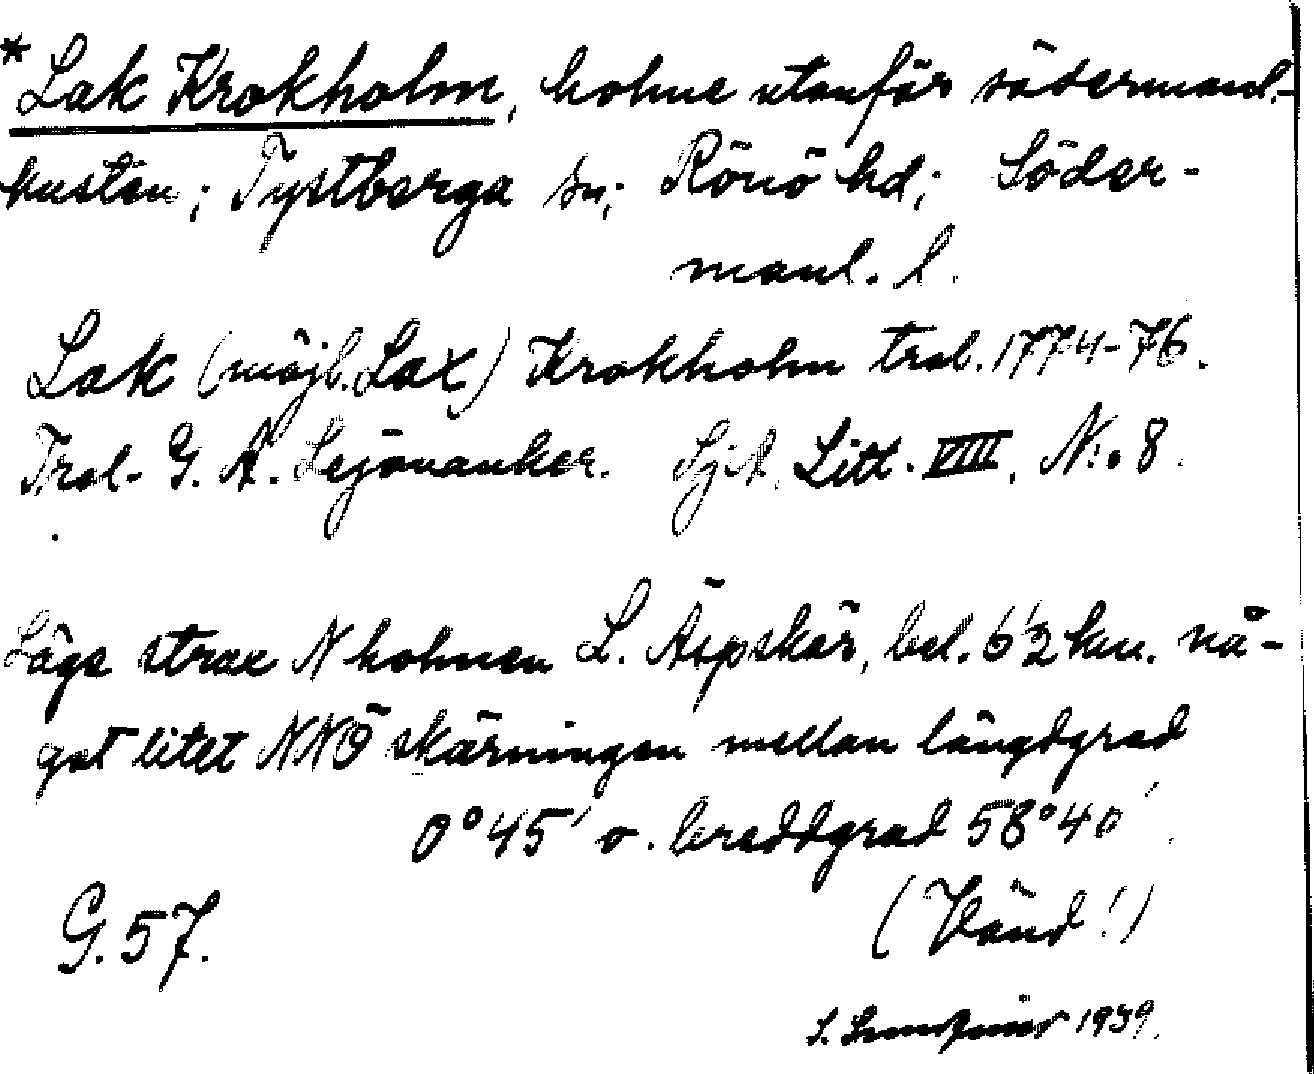 * Lak Krokholm, holme utanför södermanl.-
kusten; Tystberga sn; Rönö hd; Söder-
manl. l.
Lak (möjl. Lax) Krokholm trol. 1774-76.
Trol. G. A. Lejonanker. SjA. Litt. VIII, N:o 8.
Låge strax N holmen L. Äspskär, bel. 6 1/2 km. nå-
got litet NNÖ skärningen mellan längdgrad
0° 45' o. breddgrad 58° 40'.
(Vänd!)
G. 57.
1939.